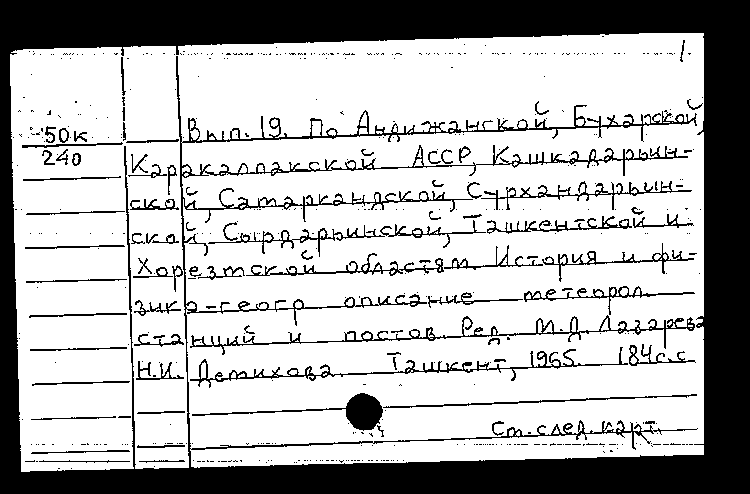 1.
50к Вып. 19. По Андижанской, Бухарской,
240 Каракалпакской АССР, Кашкадарьин-
ской, Самаркандской, Сурхандарьин-
ской, Сырдарьинской, Ташкентской и
Хорезмской областям. История и фи-
зико-геогр описание метеорол.
станций и постов. Ред. М.Д. Лазарева
Н.И. Демихова. Ташкент, 1965. 184с.с
См. след. карт.